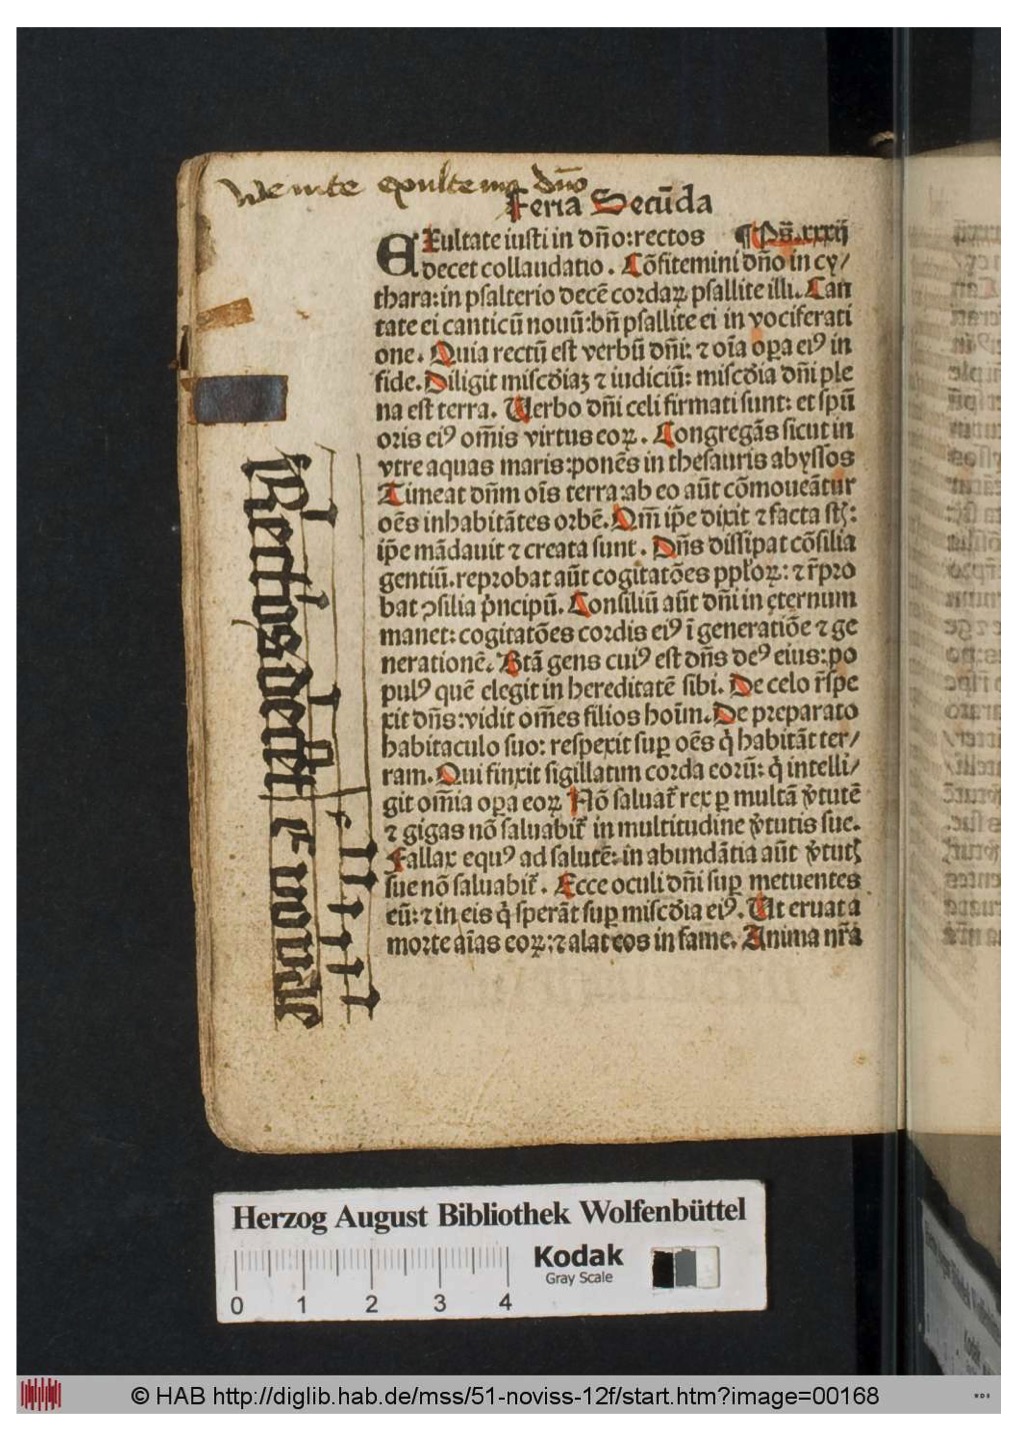 Venite exultemus dño
Feria Secūda
EXultate iusti in dño: rectos ¶ Ps̄. xxxij
decet collaudatio. Cōfitemini dño in cy/
thara: in psalterio decē cordaꝝ psallite illi. Can
tate ei canticū nouū: bñ psallite ei in vociferati
one. Quia rectū est verbū dñi: ⁊ oīa oꝑa eiꝰ in
fide. Diligit miscd̄iaꝫ ⁊ iudiciū: miscd̄ia dñi ple
na est terra. Verbo dñi celi firmati sunt: et spū
oris eiꝰ om̄is virtus eoꝝ. Congregās sicut in
vtre aquas maris: ponēs in thesauris abyssos
Timeat dñm oīs terra: ab eo aūt cōmoueātur
oēs inhabitātes orbē. Qm̄ ip̄e dixit ⁊ facta st̄:
ip̄e mādauit ⁊ creata sunt. Dñs dissipat cōsilia
gentiū. reprobat aūt cogitatōes ppl̓oꝝ: ⁊ r̄pro
bat ꝯsilia p̄ncipū. Consiliū aūt dñi in ęternum
manet: cogitatōes cordis eiꝰ ī generatiōe ⁊ ge
nerationē. Btā gens cuiꝰ est dñs deꝰ eius: po
pulꝰ quē elegit in hereditatē sibi. De celo r̄spe
xit dñs: vidit om̄es filios hoīm. De preparato
habitaculo suo: respexit suꝑ oēs q̇ habitāt ter/
ram. Qui finxit sigillatim corda eorū: q̇ intelli/
git om̄ia oꝑa eoꝝ Nō saluat̄ rex ꝑ multā v̓tutē
⁊ gigas nō saluabit̄ in multitudine v̓tutis sue.
Fallax equꝰ ad salutē: in abundātia aūt v̓tutꝭ
sue nō saluabit̄. Ecce oculi dñi suꝑ metuentes
eū: ⁊ in eis q̇ sperāt suꝑ miscd̄ia eiꝰ. Ut eruat a
morte aīas eoꝝ: ⁊ alat eos in fame. Anima nr̄a
Herzog August Bibliothek Wolfenbüttel
Kodak
Gray Scale
0 1 2 3 4
© HAB http://diglib.hab.de/mss/51-noviss-12f/start.htm?image=00168